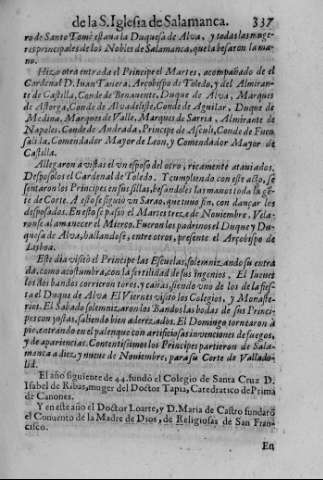 de la S. Iglesia de Salamanca. 337
ro de Santo Tomè estaua la Duquesa de Alva, y todas las muge-
res principales de los Nobles de Salamanca, que la besaron la ma-
no.
Hizo otra entrada el Principe el Martes, acompañado de el
Cardenal D. Iuan Tauera, Arçobispo de Toledo, y del Almiran-
te de Castilla, Conde de Benauente, Duque de Alva, Marques
de Astorga, Conde de Alvadeliste, Conde de Aguilar, Duque de
Medina, Marques de Valle, Marques de Sarria, Almirante de
Napoles, Conde de Andrada, Principe de Asculi, Conde de Fuen
salida, Comendador Mayor de Leon, y Comendador Mayor de
Castilla.
Allegaron à vistas el vn esposo del otro, ricamente atauiados.
Desposolos el Cardenal de Toledo. Y cumpliendo con este acto, se
sentaron los Principes en sus sillas, besandoles las manos toda la gē-
te de Corte. A esto se siguiò vn Sarao, que tuuo fin, con dançar los
desposados. En esto se passò el Martes treze de Noviembre. Vela-
ronse al amanecer el Mierco. Fueron los padrinos el Duque y Du-
quesa de Alva, hallandose, entre otros, presente el Arçobispo de
Lisboa.
Este dia visitò el Principe las Escuelas, solemnizando su entra
da, como acostumbra, con la fertilidad de sus ingenios. El Iueues
los dos bandos corrieron toros, y cañas, siendo vno de los de la fies-
ta el Duque de Alva. El Viernes visitò los Colegios, y Monaste-
rios. El Sabado solemnizaron los Bandos las bodas de sus Princi-
pes con justas, saliendo bien adereçados. El Domingo tornearon à
pie, entrando en el palenque con artificiosas invenciones de fuegos,
y de apariencias. Contentissimos los Principes partieron de Sala-
manca à diez, y nueue de Noviembre, para su Corte de Vallado-
lid.
El año siguiente de 44. fundò el Colegio de Santa Cruz D.
Isabel de Ribas, muger del Doctor Tapia, Catedratico de Prima
de Canones.
Y en este año el Doctor Loarte, y D. Maria de Castro fundarō
el Conuento de la Madre de Dios, de Religiosas de San Fran-
cisco.
En